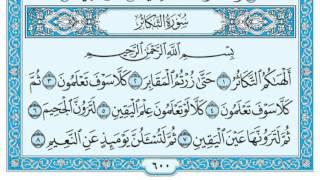 سُورَةُ التَّكَاثُرِ
بِسْمِ اللَّهِ الرَّحْمَٰنِ الرَّحِيمِ
أَلْهَىٰكُمُ التَّكَاثُرُ ۝١ حَتَّىٰ زُرْتُمُ الْمَقَابِرَ ۝٢ كَلَّا سَوْفَ تَعْلَمُونَ ۝٣ ثُمَّ
كَلَّا سَوْفَ تَعْلَمُونَ ۝٤ كَلَّا لَوْ تَعْلَمُونَ عِلْمَ الْيَقِينِ ۝٥ لَتَرَوُنَّ الْجَحِيمَ ۝٦
ثُمَّ لَتَرَوُنَّهَا عَيْنَ الْيَقِينِ ۝٧ ثُمَّ لَتُسْـَٔلُنَّ يَوْمَئِذٍ عَنِ النَّعِيمِ ۝٨
٦٠٠